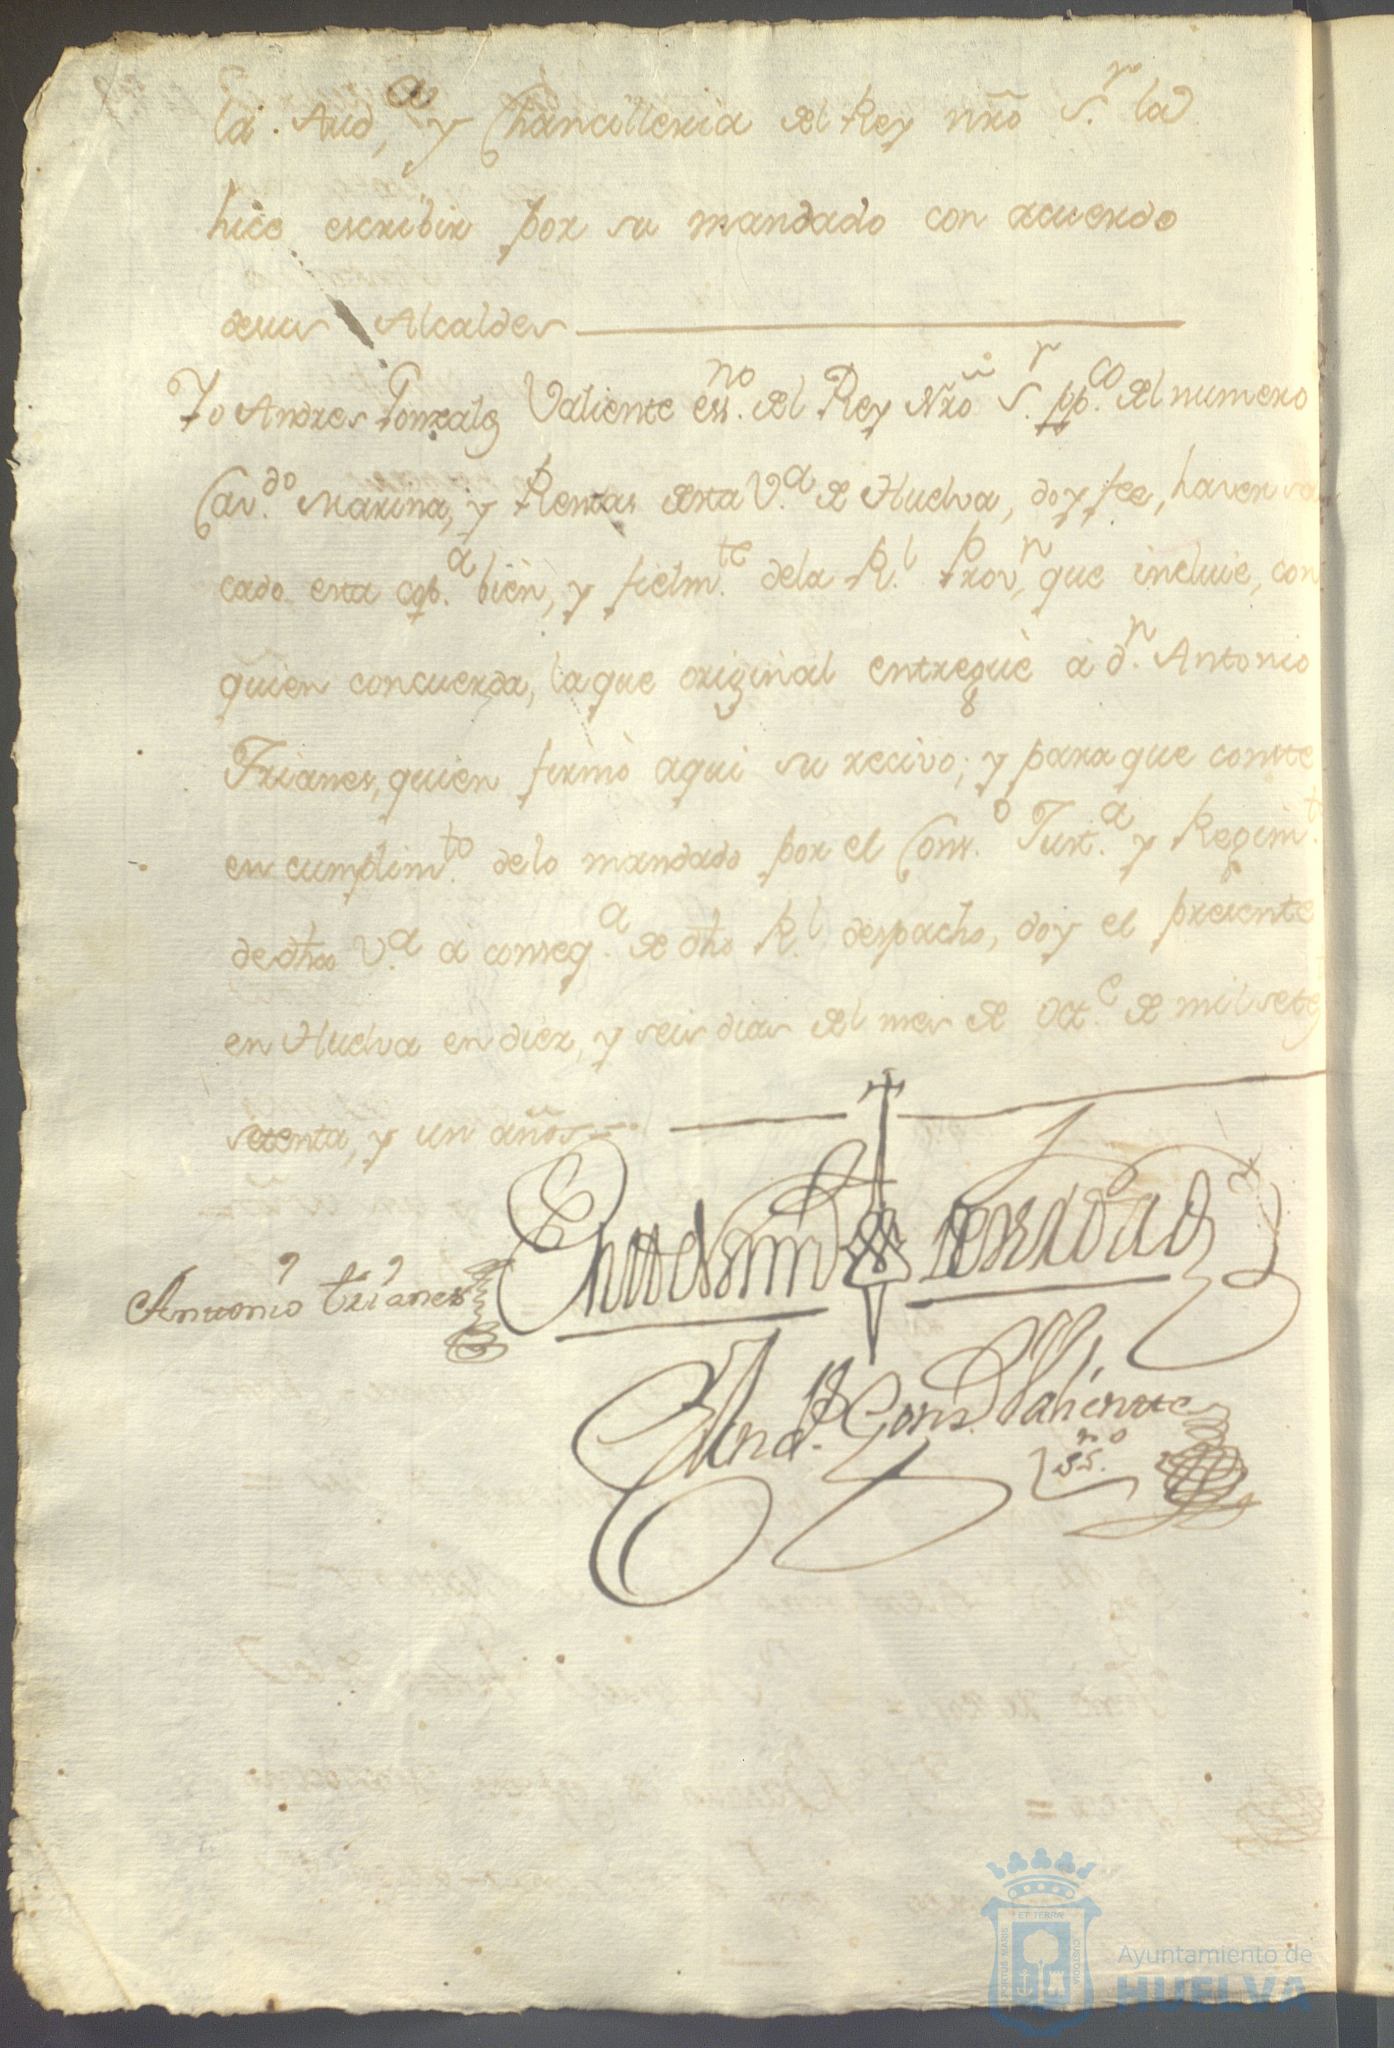 la. Aud,ª y Chancilleria del Rey nrõ S.r la
hice escribir por su mandado con acuerdo
desus Alcaldes
Yo Andres Gonzalz Valiente ess.no del Rey Nrõ S.r pp.co del numero
Cav.do Marina, y Rentas desta V.a de Huelva, doy fee, haver sa
cado esta cop.a bien, y fielm.te dela R.l Prov,n que incluie, con
quien concuerda, la que original entreguè à d.n Antonio
Trianes, quien firmò aqui su recivo; y para que conste
en cumplim.to delo mandado por el Cons.o Just.a y Regim.to
de dha V.a à conseq.a de dho R.l despacho, doy el presente
en Huelva en diez, y seis dias del mes de Oct.e de mil setez
setenta, y un años
Antonio trianes
And.s Gonz. Valiente
ss.no
PORTUS MARIS
ET TERRÆ
CUSTODIA
Ayuntamiento de
HUELVA